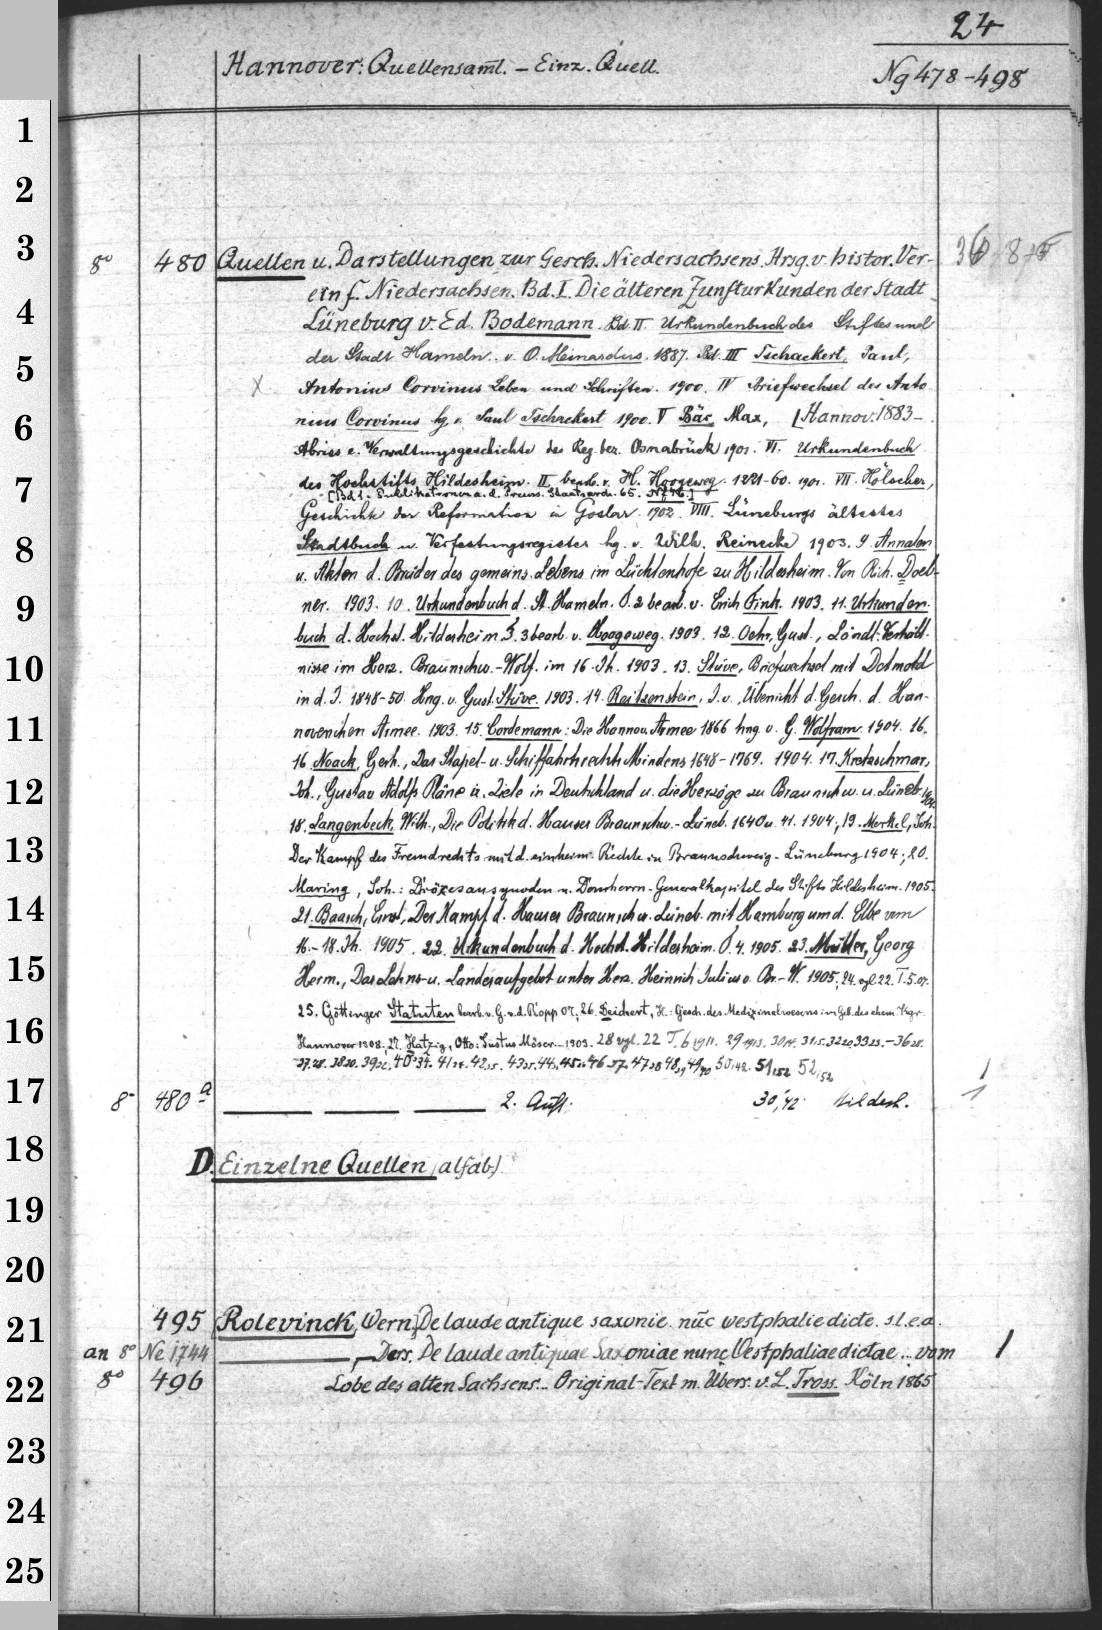 24
Hannover: Quellensaml. – Einz. Quell.
Ng 478–498
1
2
3
8° 480 Quellen u. Darstellungen zur Gesch. Niedersachsens. Hrsg. v. histor. Ver-
ein f. Niedersachsen. Bd. I. Die älteren Zunfturkunden der Stadt
4
Lüneburg v. Ed. Bodemann. Bd. II. Urkundenbuch des Stiftes und
der Stadt Hameln. v. O. Meinardus. 1887. Bd. III Tschackert, Paul,
5
X Antonius Corvinus Leben und Schriften. 1900. IV Briefwechsel des Anto
6
nius Corvinus hg. v. Paul Tschackert 1900. V Bär, Max, [Hannov. 1883–
Abriss e. Verwaltungsgeschichte des Reg. bez. Osnabrück 1901. VI. Urkundenbuch
7
des Hochstifts Hildesheim. II bearb. v. H. Hoogeweg. 1221–60. 1901. VII. Hölscher,
[Bd 1. Publikationen a. d. Preuss. Staatsarch. 65.
Geschichte der Reformation in Goslar. 1902. VIII. Lüneburgs ältestes
8
Stadtbuch u. Verfestungsregister hg. v. Wilh. Reinecke 1903. 9. Annalen
u. Akten d. Brüder des gemeins. Lebens im Lüchtenhofe zu Hildesheim. Von Rich. Doeb-
9
ner. 1903. 10. Urkundenbuch d. St. Hameln. T. 2 bearb. v. Erich Fink. 1903. 11. Urkunden-
buch d. Hochst. Hildesheim T. 3 bearb. v. Hoogeweg. 1903. 12. Oehr, Gust., Ländl. Verhält-
10
nisse im Herz. Braunschw.-Wolf. im 16. Jh. 1903. 13. Stüve, Briefwechsel mit Detmold
in d. J. 1848–50. Hrsg. v. Gust. Stüve. 1903. 14. Reitzenstein, J. v., Übersicht d. Gesch. d. Han-
11
noverschen Armee. 1903. 15. Cordemann: Die Hannov. Armee 1866 hrsg. v. G. Wolfram. 1904. 16.
16. Noack, Gerh., Das Stapel- u. Schiffahrtsrecht Mindens 1648–1769. 1904. 17. Kretzschmar,
12
Joh., Gustav Adolfs Pläne u. Ziele in Deutschland u. die Herzöge zu Braunschw. u. Lüneb. 1904.
18. Langenbeck, Wilh., Die Politik d. Hauses Braunschw.-Lüneb. 1640 u. 41. 1904; 19. Merkel, Joh.
13
Der Kampf des Fremdrechts mit d. einheim. Rechte in Braunschweig-Lüneburg 1904; 20.
Maring, Joh.: Diözesansynoden u. Domherrn-Generalkapitel des Stifts Hildesheim. 1905.
14
21. Baasch, Ernst, Der Kampf d. Hauses Braunschw. Lüneb. mit Hamburg um d. Elbe vom
16.–18. Jh. 1905. 22. Urkundenbuch d. Hochst. Hildesheim. T. 4. 1905. 23. Müller, Georg
15
Herm., Das Lehns- u. Landesaufgebot unter Herz. Heinrich Julius v. Br.-W. 1905; 24. vgl. 22. T. 5. 07.
25. Göttinger Statuten bearb. v. G. v. d. Ropp 07; 26. Deichert, H.: Gesch. des Medizinalwesens im Geb. des ehem. Kgr.
16
Hannover 1908; 27. Hatzig, Otto: Justus Möser. 1909. 28 vgl. 22 T. 6 1911. 29 1913. 30 14. 31 15. 32 20. 33 23. –36 28.
17
8° 480ª ——— ——— ——— 2. Aufl. 30,'42 Hildesh. 1
18
D. Einzelne Quellen (alfab)
19
20
495 Rolevinck, Wern., De laude antique saxonie nūc westphalie dicte. s.l.e.a.
21
an 8° Ne 1744 ———, Ders. De laude antiquae Saxoniae nunc Westphaliae dictae... vom 1
22
8° 496 Lobe des alten Sachsens... Original-Text m. Übers. v. L. Tross. Köln 1865
23
24
25